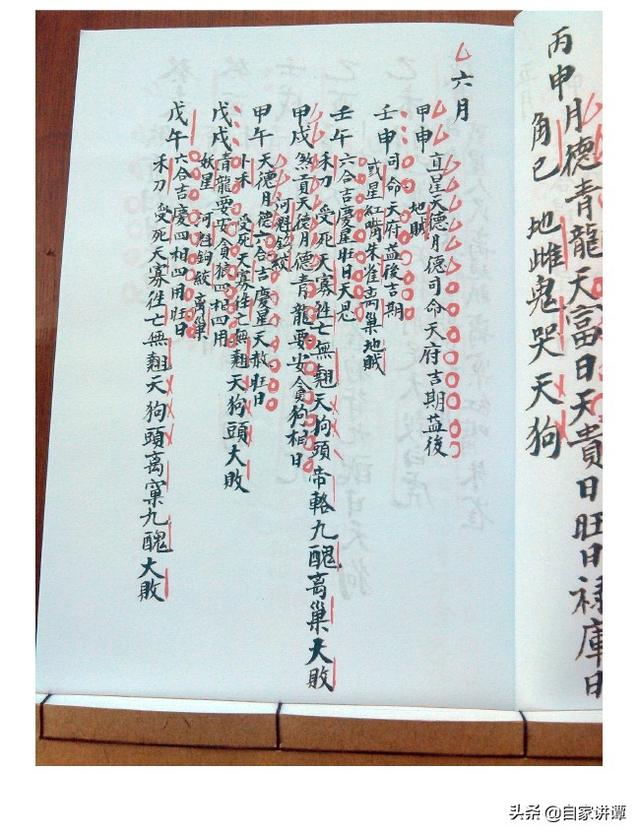 丙申月德青龍天富日天貴日旺日禄庫日
角巳 地雌鬼哭天狗
六月
甲申直星天德月德司命天府吉期益後
地賊
壬申司命天府益後吉期
或星紅嘴朱雀离巢地賊
壬午六合吉慶星旺日天恩
禾刀 受死天寡徃亡無翹天狗頭帝輅九醜离巢大敗
甲戍煞貢天德月德青龍要安貪狗相日
河魁鈎絞
甲午天德月德六合吉慶星天赦旺日
卜禾 受死天寡徃亡無翹天狗頭大敗
戊戍青龍要安貪狗四相四用
妖星 河魁鈎絞 离巢
戊午六合吉慶四相四用旺日
禾刀 受死天寡徃亡無翹天狗頭离窠九醜大敗
头条 @自家讲谭